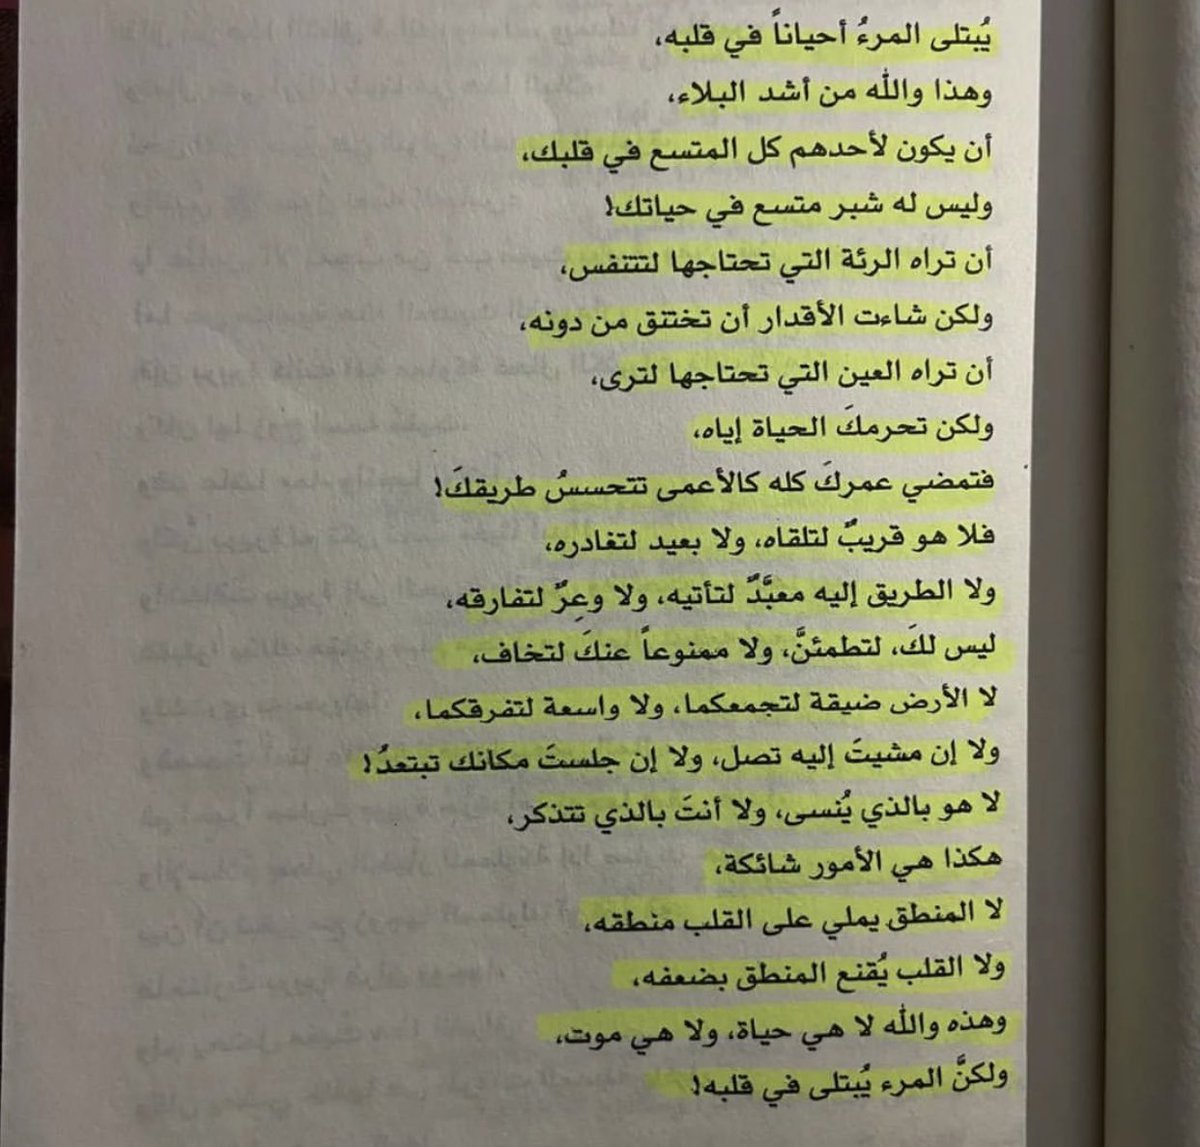 يُبتلى المرءُ أحياناً في قلبه،
وهذا والله من أشد البلاء،
أن يكون لأحدهم كل المتسع في قلبك،
وليس له شبر متسع في حياتك!
أن تراه الرئة التي تحتاجها لتتنفس،
ولكن شاءت الأقدار أن تختنق من دونه،
أن تراه العين التي تحتاجها لترى،
ولكن تحرمكَ الحياة إياه،
فتمضي عمركَ كله كالأعمى تتحسسُ طريقكَ!
فلا هو قريبٌ لتلقاه، ولا بعيد لتغادره،
ولا الطريق إليه معبَّدٌ لتأتيه، ولا وعِرٌ لتفارقه،
ليس لكَ، لتطمئنَّ، ولا ممنوعاً عنكَ لتخاف،
لا الأرض ضيقة لتجمعكما، ولا واسعة لتفرقكما،
ولا إن مشيتَ إليه تصل، ولا إن جلستَ مكانك تبتعدُ!
لا هو بالذي يُنسى، ولا أنتَ بالذي تتذكر،
هكذا هي الأمور شائكة،
لا المنطق يملي على القلب منطقه،
ولا القلب يُقنع المنطق بضعفه،
وهذه والله لا هي حياة، ولا هي موت،
ولكنَّ المرء يُبتلى في قلبه!